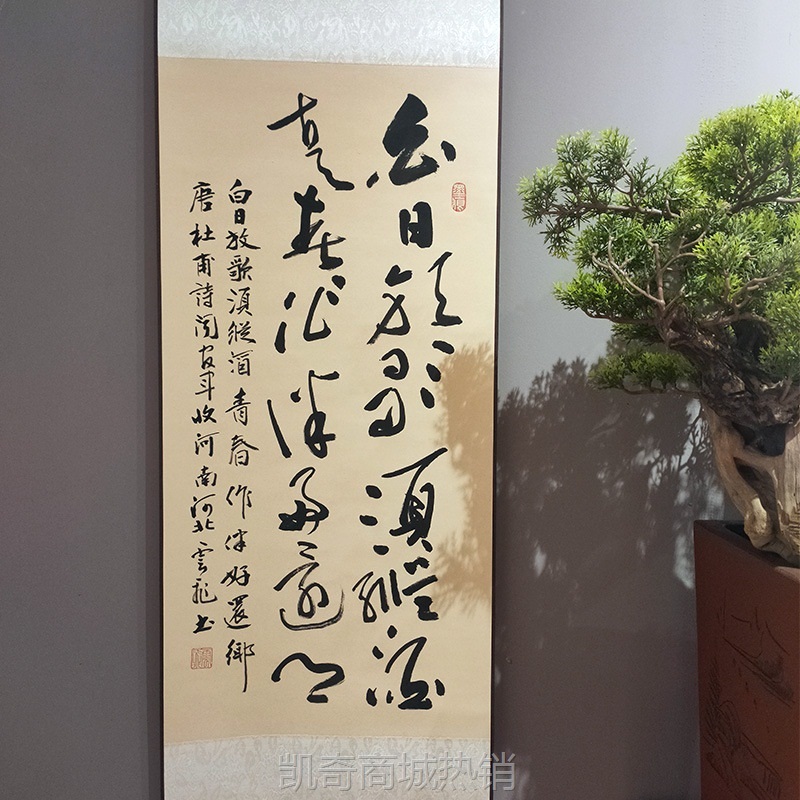 白日放歌須縱酒
青春作伴好還鄉
白日放歌須縱酒青春作伴好還鄉
唐杜甫詩聞官軍收河南河北雲龍书
凯奇商城热销